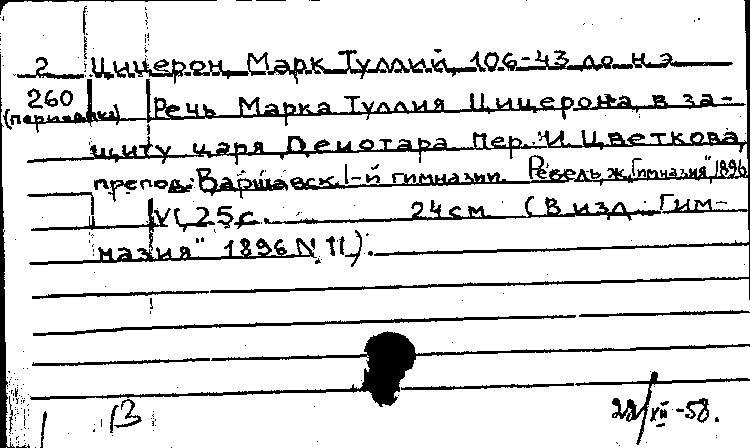 2 Цицерон, Марк Туллий, 106-43 до н.э.
260 Речь Марка Туллия Цицерона в за-
(периодика)
щиту царя Деиотара. Пер. И. Цветкова,
препод. Варшавск. I-й гимназии. Ревель, ж. "Гимназия", 1896
VI, 25 с. 24 см (В изд. "Гим-
назия" 1896 N II).
13
28/XII-58.